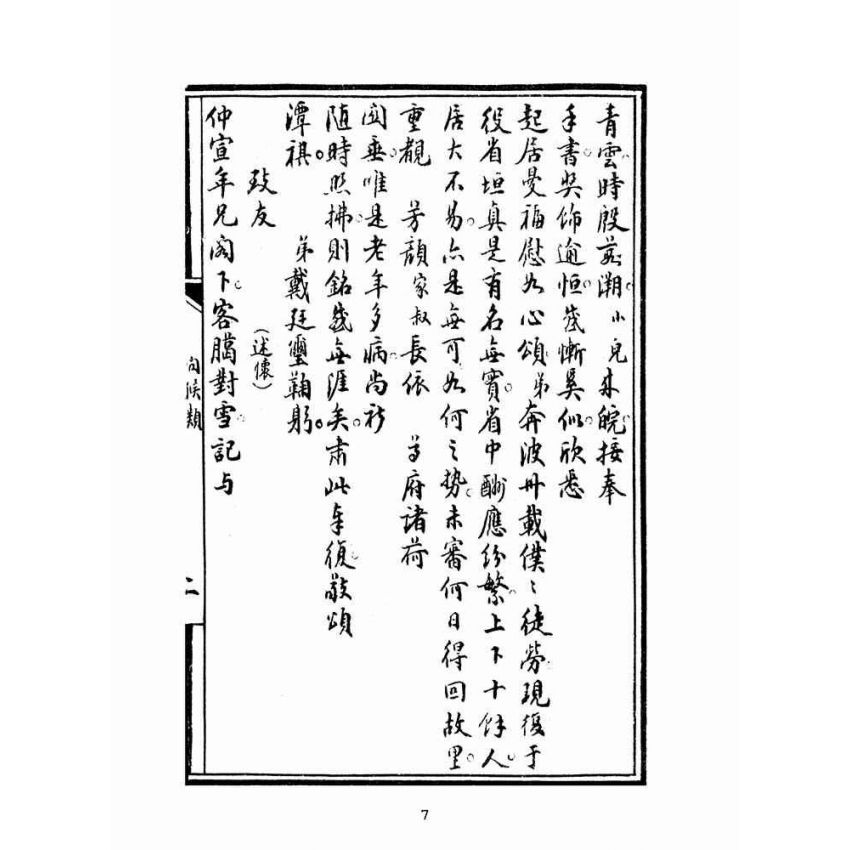 青雲時殷茲溯。小兒來皖。接奉
手書。奖飾逾恒。幾慚吳似。欣悉
起居曼福。慰如心頌。弟奔波卅載。僕〻徒勞。現復于
役省垣。真是有名無實。省中酬應紛繁。上下十餘人。
居大不易。亦是無可如何之勢。未審何日得回故里。
重觀 芳顏。家叔長依 尊府。諸荷
囪垂。唯是老年多病。尚祈
随時照拂。則銘幾無涯矣。肅此奉復。敬頌
潭祺。 弟戴廷璽鞠躬。
致友 (述懷)
仲宣年兄閣下。客臘對雪。記与
問候類
二
7